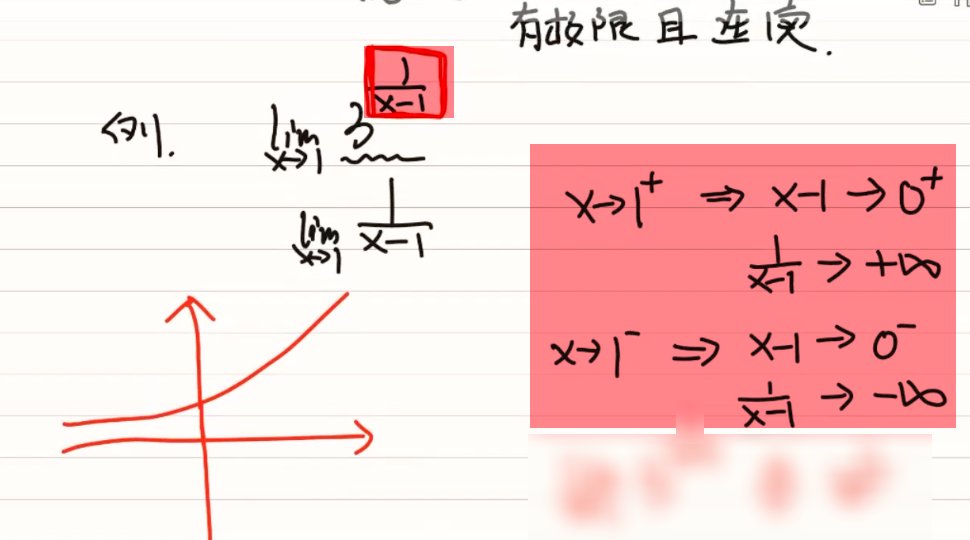 有极限且连续.
例1. lim x→1 3^(1/(x-1))
lim x→1 1/(x-1)
x→1⁺ ⇒ x-1→0⁺
1/(x-1) → +∞
x→1⁻ ⇒ x-1→0⁻
1/(x-1) → -∞